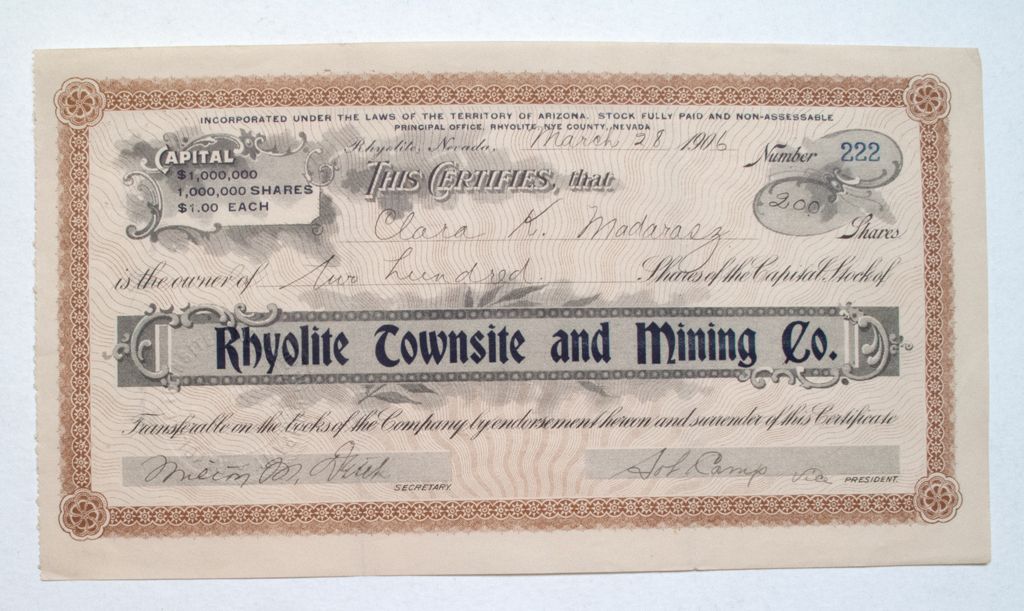 INCORPORATED UNDER THE LAWS OF THE TERRITORY OF ARIZONA. STOCK FULLY PAID AND NON-ASSESSABLE
PRINCIPAL OFFICE, RHYOLITE, NYE COUNTY, NEVADA
Rhyolite, Nevada, March 28 1906
Number 222
CAPITAL
$1,000,000
1,000,000 SHARES
$1.00 EACH
THIS CERTIFIES, that
200 Shares
Clara K. Madarasz
is the owner of Two hundred Shares of the Capital Stock of
Rhyolite Townsite and Mining Co.
Transferable on the books of the Company by endorsement hereon and surrender of this Certificate
M. SECRETARY.
Sol. Camp Vice PRESIDENT.